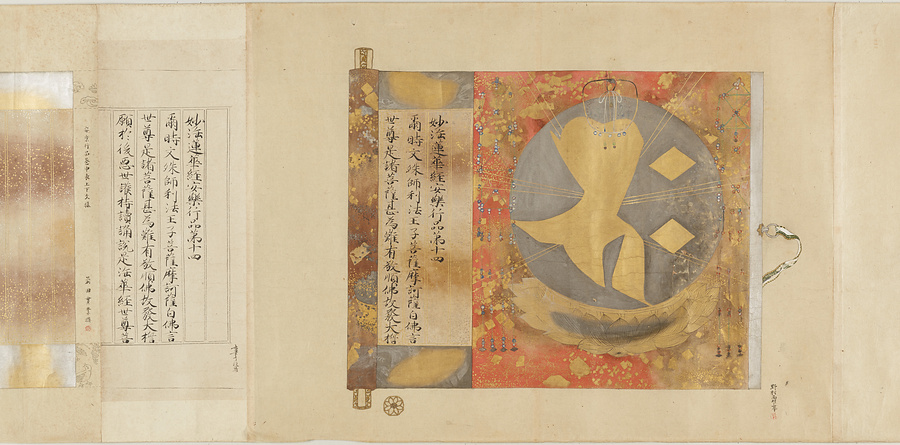 妙法蓮華經安樂行品第十四
爾時文殊師利法王子菩薩摩訶薩白佛言
世尊是諸菩薩甚為難有敬順佛故發大擔
妙法蓮華經安樂行品第十四
爾時文殊師利法王子菩薩摩訶薩白佛言
世尊是諸菩薩甚為難有敬順佛故發大擔
願於後惡世護持讀誦說是法華經世尊菩